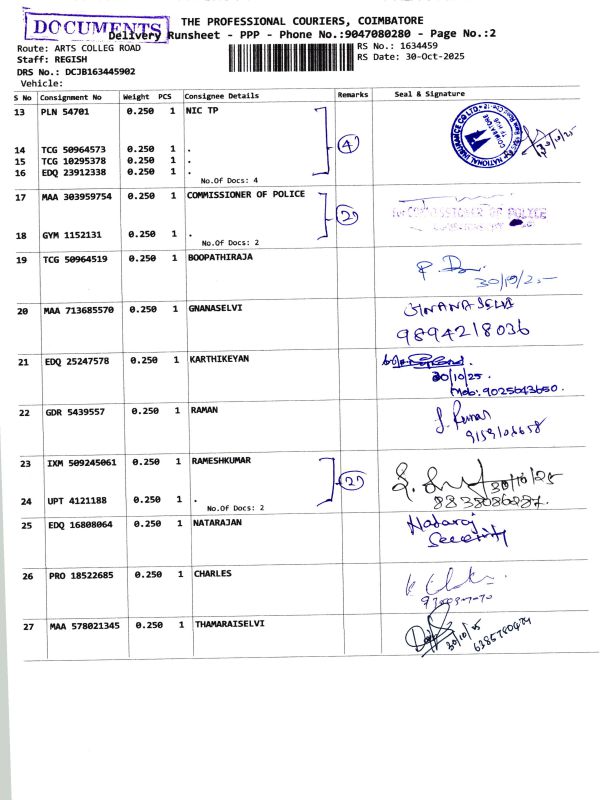 DOCUMENTS
THE PROFESSIONAL COURIERS, COIMBATORE
Delivery Runsheet - PPP - Phone No.:9047080280 - Page No.:2
Route: ARTS COLLEG ROAD
RS No.: 1634459
Staff: REGISH
RS Date: 30-Oct-2025
DRS No.: DCJB163445902
Vehicle:
S No Consignment No Weight PCS Consignee Details Remarks Seal & Signature
13 PLN 54701 0.250 1 NIC TP
14 TCG 50964573 0.250 1 .
15 TCG 10295378 0.250 1 .
16 EDQ 23912338 0.250 1 .
No.Of Docs: 4
4
NATIONAL INSURANCE CO LTD
COIMBATORE
30/10/25
17 MAA 303959754 0.250 1 COMMISSIONER OF POLICE
18 GYM 1152131 0.250 1 .
No.Of Docs: 2
2
COMMISSIONER OF POLICE
19 TCG 50964519 0.250 1 BOOPATHIRAJA
30/10/2
20 MAA 713685570 0.250 1 GNANASELVI
GNANASELVI
9894218036
21 EDQ 25247578 0.250 1 KARTHIKEYAN
30/10/25.
Mob: 9025643650.
22 GDR 5439557 0.250 1 RAMAN
23 IXM 509245061 0.250 1 RAMESHKUMAR
24 UPT 4121188 0.250 1 .
No.Of Docs: 2
2
30/10/25
8838086287.
25 EDQ 16808064 0.250 1 NATARAJAN
Nataraj
Security
26 PRO 18522685 0.250 1 CHARLES
27 MAA 578021345 0.250 1 THAMARAISELVI
30/10/25